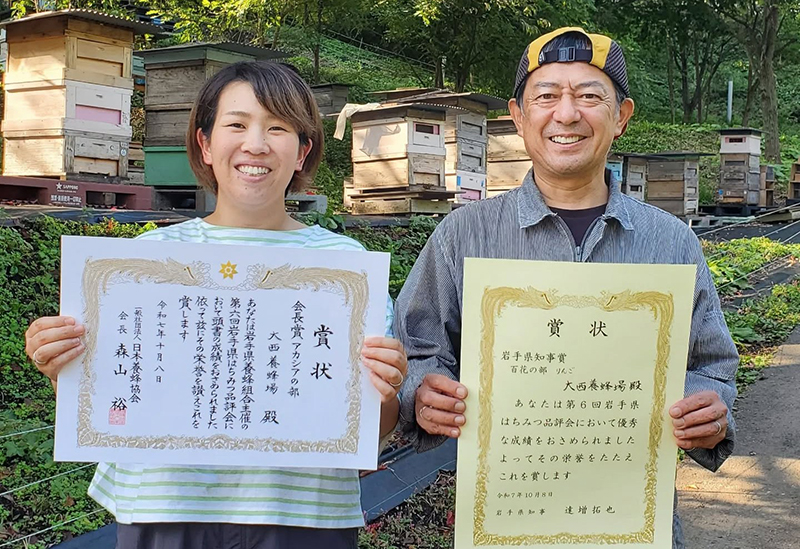 賞状
会長賞 アカシアの部
大西養蜂場 殿
あなたは岩手県養蜂組合主催の
第六回岩手県はちみつ品評会に
おいて頭書の成績をおさめられました
依って茲にその栄誉を讃えこれを
賞します
令和七年十月八日
一般社団法人日本養蜂協会
会長 森山 裕
賞状
岩手県知事賞
百花の部 りんご
大西養蜂場殿
あなたは第6回岩手県
はちみつ品評会において優秀
な成績をおさめられました
よってその栄誉をたたえ
これを賞します
令和7年10月8日
岩手県知事 達増拓也
SAPPORO